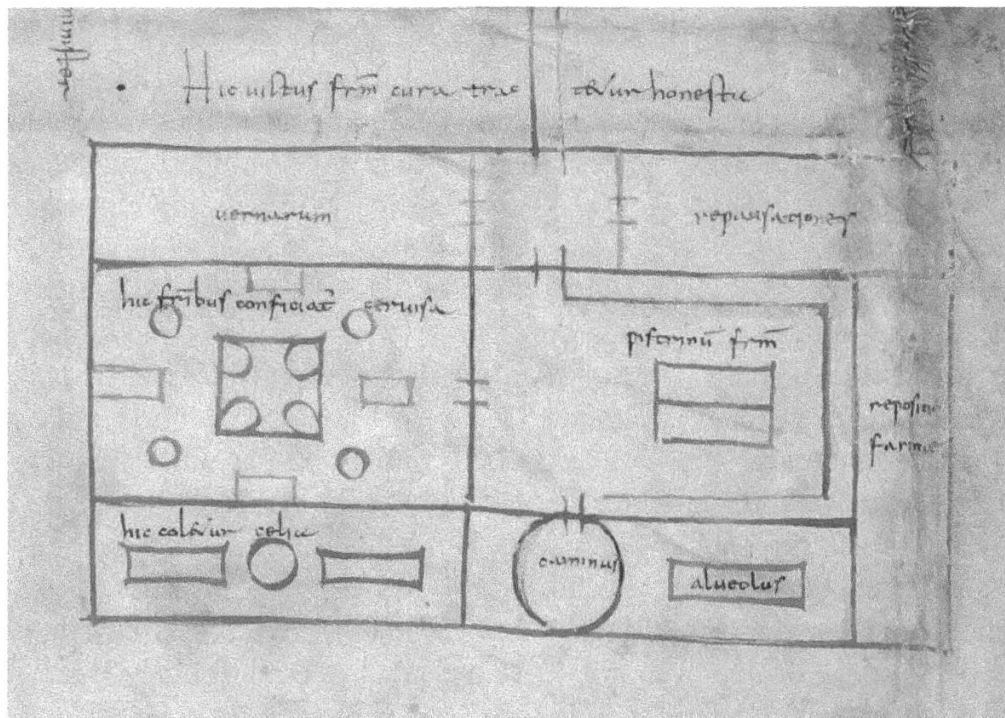 Hic uictus frm̄ cura trac tetur honeste
uernarum repausationes
hic fr̄ibus conficiat̄ ceruisa
pistrinū frm̄
repositio
farine
hic coletur celia
caminus
alueolus